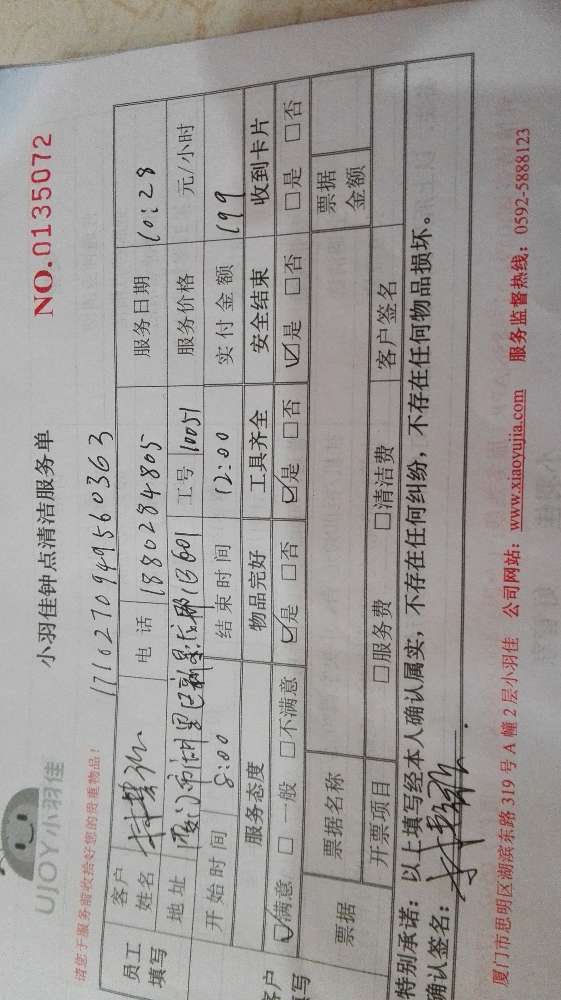 UJOY小羽佳
小羽佳钟点清洁服务单
NO.0135072
请您于服务前收拾好您的贵重物品！
1710270949560363
员工填写
客户姓名 电话 1880284805 服务日期 10:28
地址 厦门市湖里区 工号 10051 服务价格 元/小时
开始时间 8:00 结束时间 12:00 实付金额 199
客户填写
服务态度 物品完好 工具齐全 安全结束 收到卡片
☑满意 □一般 □不满意 ☑是 □否 ☑是 □否 ☑是 □否 □是 □否
票据 票据名称 票据金额
开票项目 □服务费 □清洁费 客户签名
特别承诺：以上填写经本人确认属实，不存在任何纠纷，不存在任何物品损坏。
确认签名：
厦门市思明区湖滨东路 319 号 A 幢 2 层小羽佳 公司网站：www.xiaoyujia.com 服务监督热线：0592-5888123